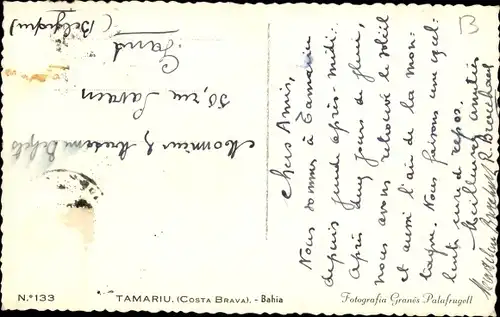 Chers Amis,
Nous sommes à Tamariu
depuis jeudi après-midi.
Après deux jours de pluie,
nous avons retrouvé le soleil
et aussi l'air de la mon-
tagne. Nous faisons une excel-
lente cure de repos.
Meilleures amitiés
Monsieur & Madame
56, rue
Gand
(Belgique)
B
N.º 133
TAMARIU. (COSTA BRAVA). - Bahia
Fotografia Granés Palafrugell